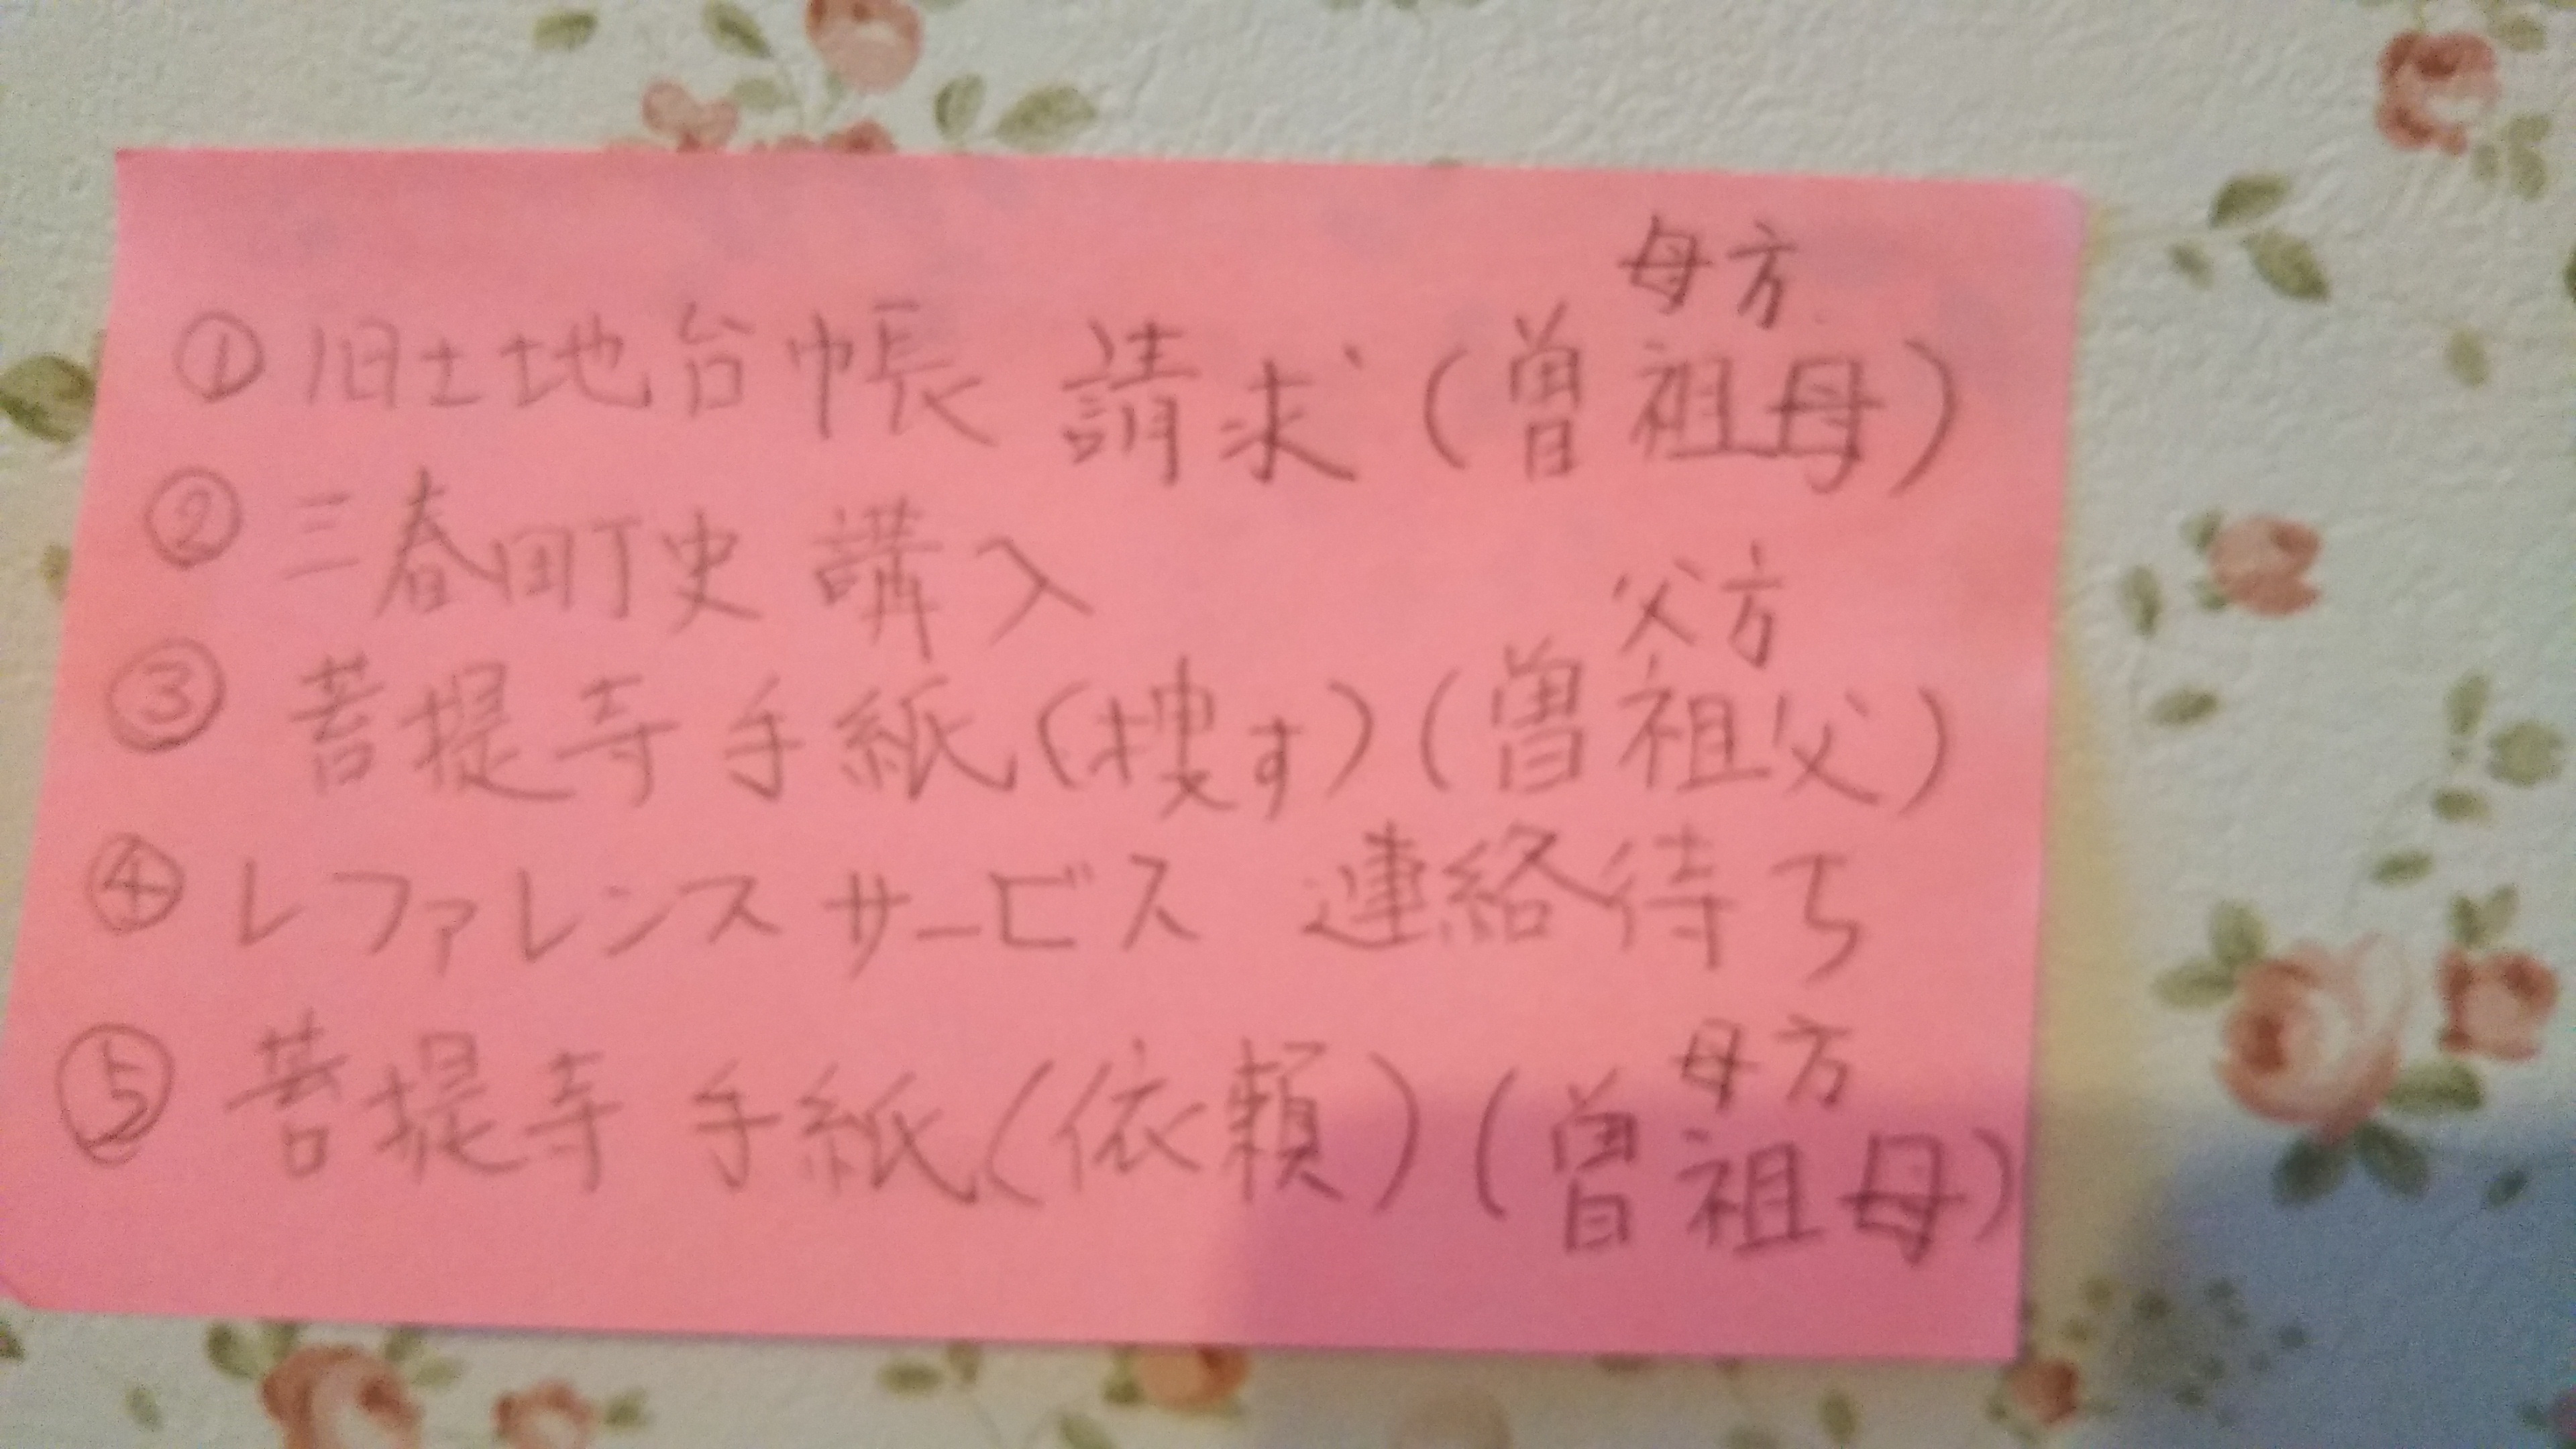 母方
①旧土地台帳 請求(曾祖母)
②三春町史 講入
父方
③菩提寺 手紙(捜す)(曾祖父)
④レファレンスサービス 連絡待ち
母方
⑤菩提寺 手紙(依頼)(曾祖母)